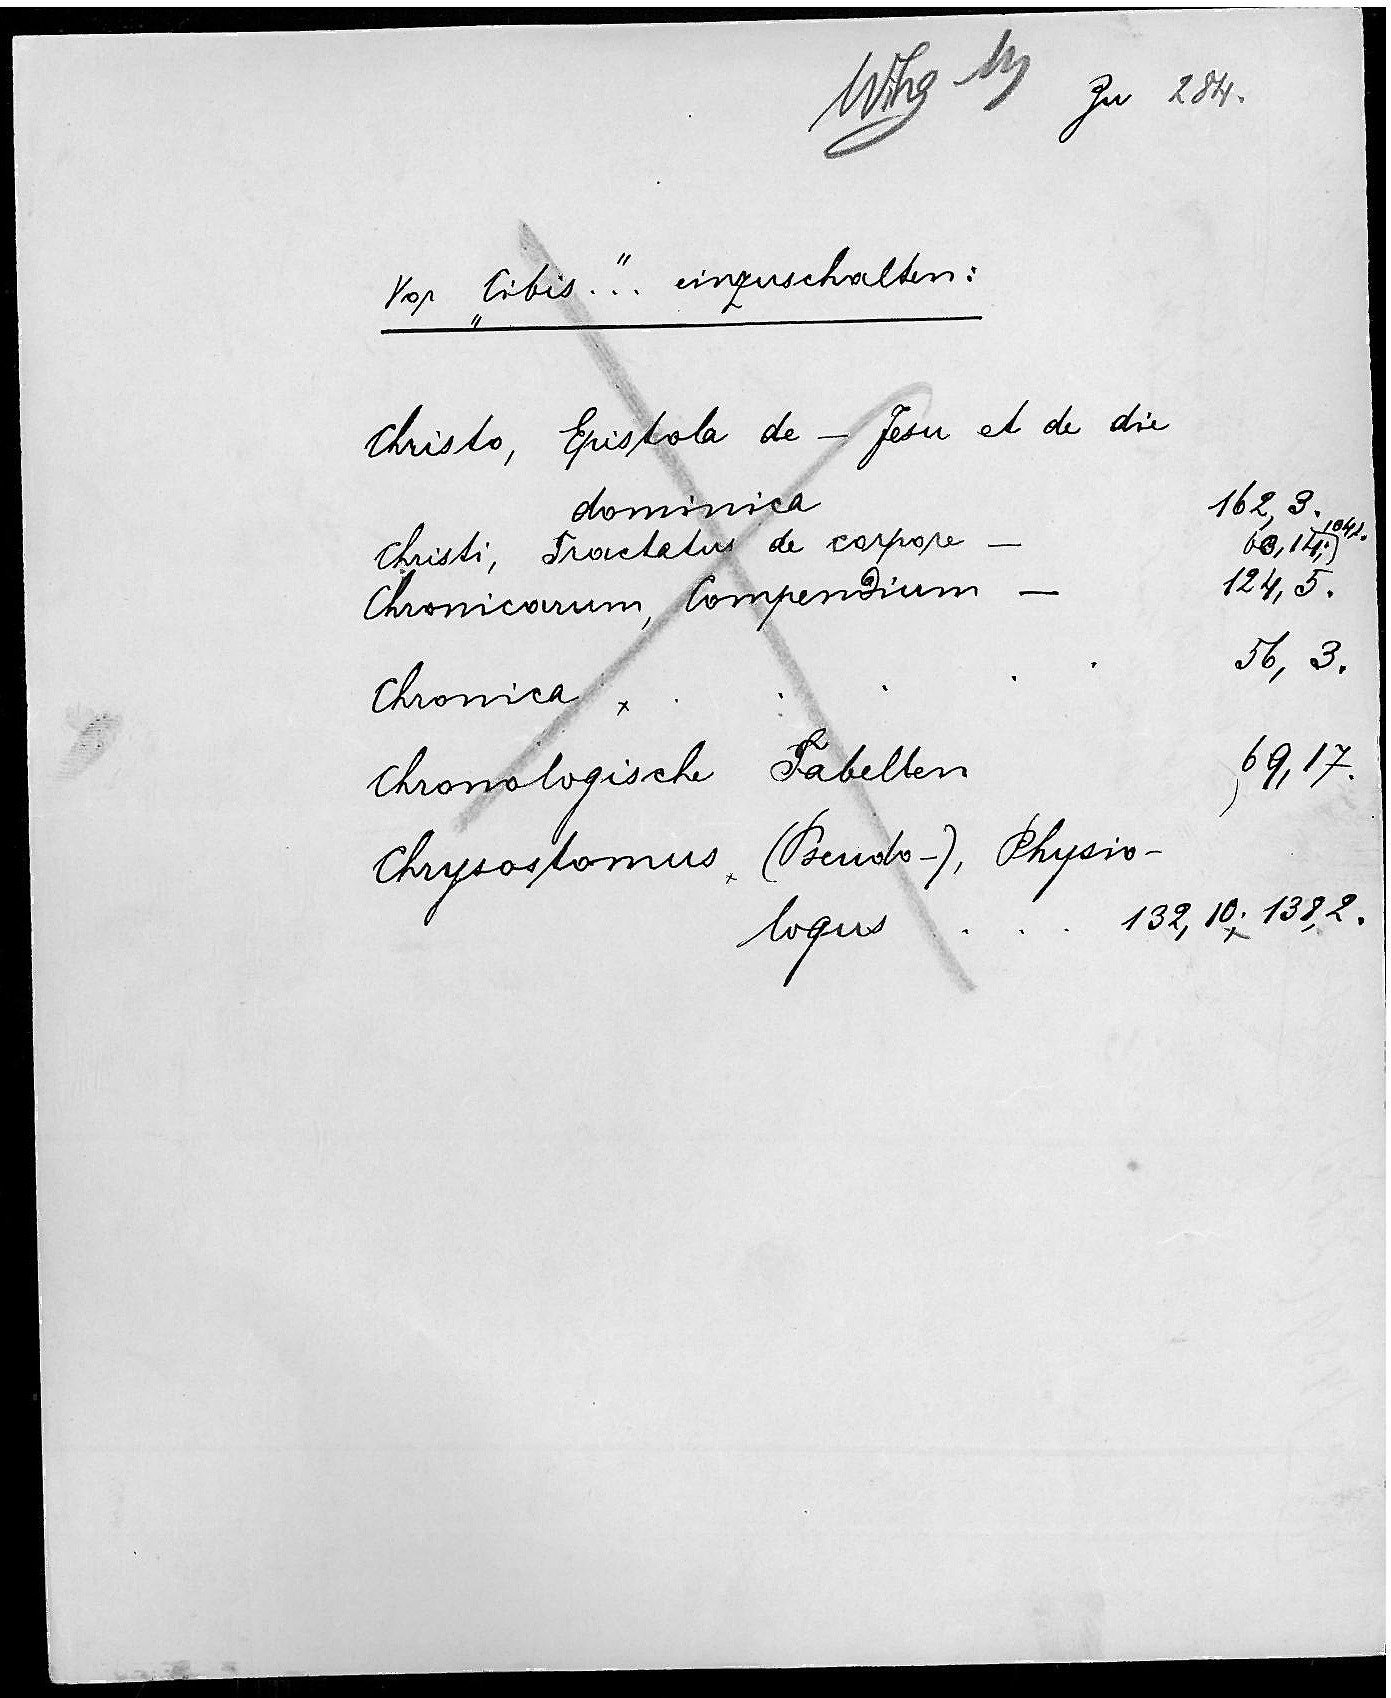 Zu 284.
Vor „Cibis..." einzuschalten:
Christo, Epistola de — Jesu et de die
dominica 162, 3.
Christi, Tractatus de corpore — 60, 14;
Chronicarum, Compendium — 124, 5.
Chronica . . . . . 56, 3.
Chronologische Tabellen 69, 17.
Chrysostomus, (Pseudo-), Physio-
logus . . . 132, 10; 138, 2.